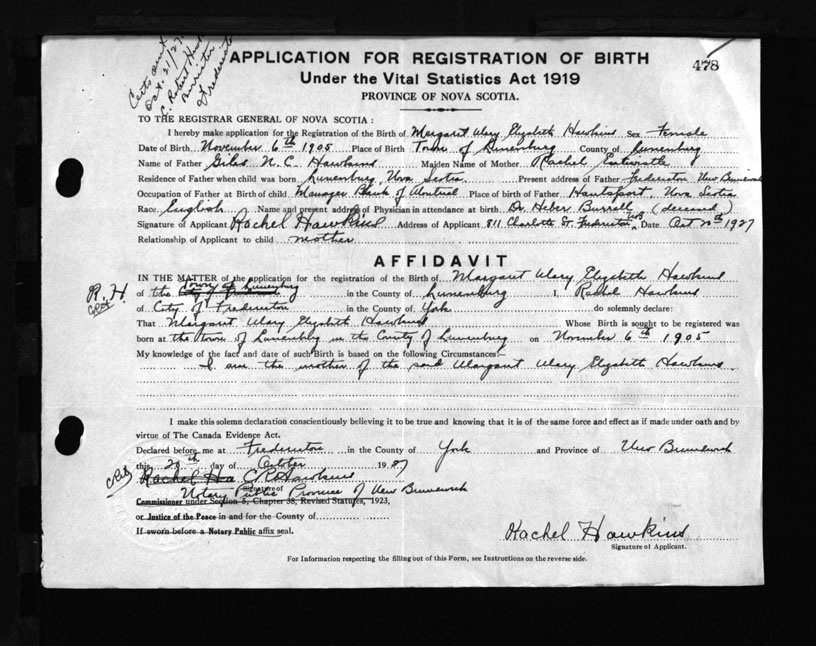 Certs sent
Oct. 21/27
C. Robert Haw
Barrister
Fredericton
APPLICATION FOR REGISTRATION OF BIRTH
478
Under the Vital Statistics Act 1919
PROVINCE OF NOVA SCOTIA.
TO THE REGISTRAR GENERAL OF NOVA SCOTIA :
I hereby make application for the Registration of the Birth of Margaret Mary Elizabeth Hawkins Sex Female
Date of Birth November 6th 1905 Place of Birth Town of Lunenburg County of Lunenburg
Name of Father Giles N. C. Hawkins Maiden Name of Mother Rachel Entwistle
Residence of Father when child was born Lunenburg, Nova Scotia Present address of Father Fredericton New Brunswick
Occupation of Father at Birth of child Manager Bank of Montreal Place of birth of Father Hantsport, Nova Scotia
Race English Name and present address of Physician in attendance at birth Dr. Heber Burrell (deceased)
Signature of Applicant Rachel Hawkins Address of Applicant 811 Charlotte St Fredericton NB Date Oct 20th 1927
Relationship of Applicant to child mother
AFFIDAVIT
IN THE MATTER of the application for the registration of the Birth of Margaret Mary Elizabeth Hawkins
R. H.
CRH
of the Town of Lunenburg in the County of Lunenburg I, Rachel Hawkins
of City of Fredericton in the County of York do solemnly declare:
That Margaret Mary Elizabeth Hawkins Whose Birth is sought to be registered was
born at the Town of Lunenburg in the County of Lunenburg on November 6th 1905
My knowledge of the fact and date of such Birth is based on the following Circumstances:—
I am the mother of the said Margaret Mary Elizabeth Hawkins.
I make this solemn declaration conscientiously believing it to be true and knowing that it is of the same force and effect as if made under oath and by
virtue of The Canada Evidence Act.
Declared before me at Fredericton in the County of York and Province of New Brunswick
this 20th day of October 1927
CRH
Rachel Ha C R Hawkins
Signature of
Notary Public Province of New Brunswick
Commissioner under Section 5, Chapter 38, Revised Statutes, 1923,
or Justice of the Peace in and for the County of
If sworn before a Notary Public affix seal.
Rachel Hawkins
Signature of Applicant.
For Information respecting the filling out of this Form, see Instructions on the reverse side.